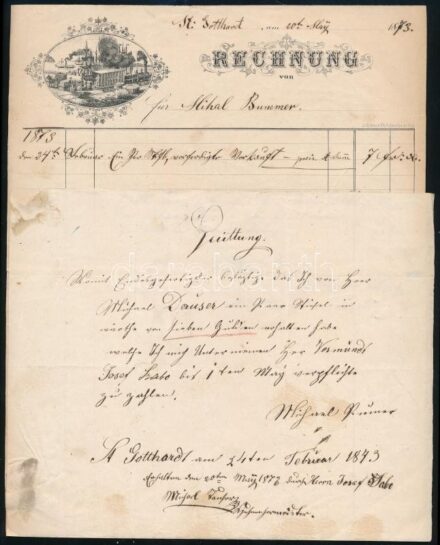 St: Gotthart am 20ten May 1873.
RECHNUNG
von
für Mihal Bummer.
1873
den 24ten Februar Ein Par verkauft 7
Quittung.
Womit Endesgefertigter bestättige das Ich von Herr
Michael Dauser ein Paar Stifel in
werthe von sieben Gulden erhalten habe
welche Ich mich Unter meinen Her Vormund
Josef bis 1ten May verpflichte
zu zahlen.
Michael
St Gotthardt am 24ten Februar 1873
Erhalten den 20ten May 1873 durch Herrn Josef